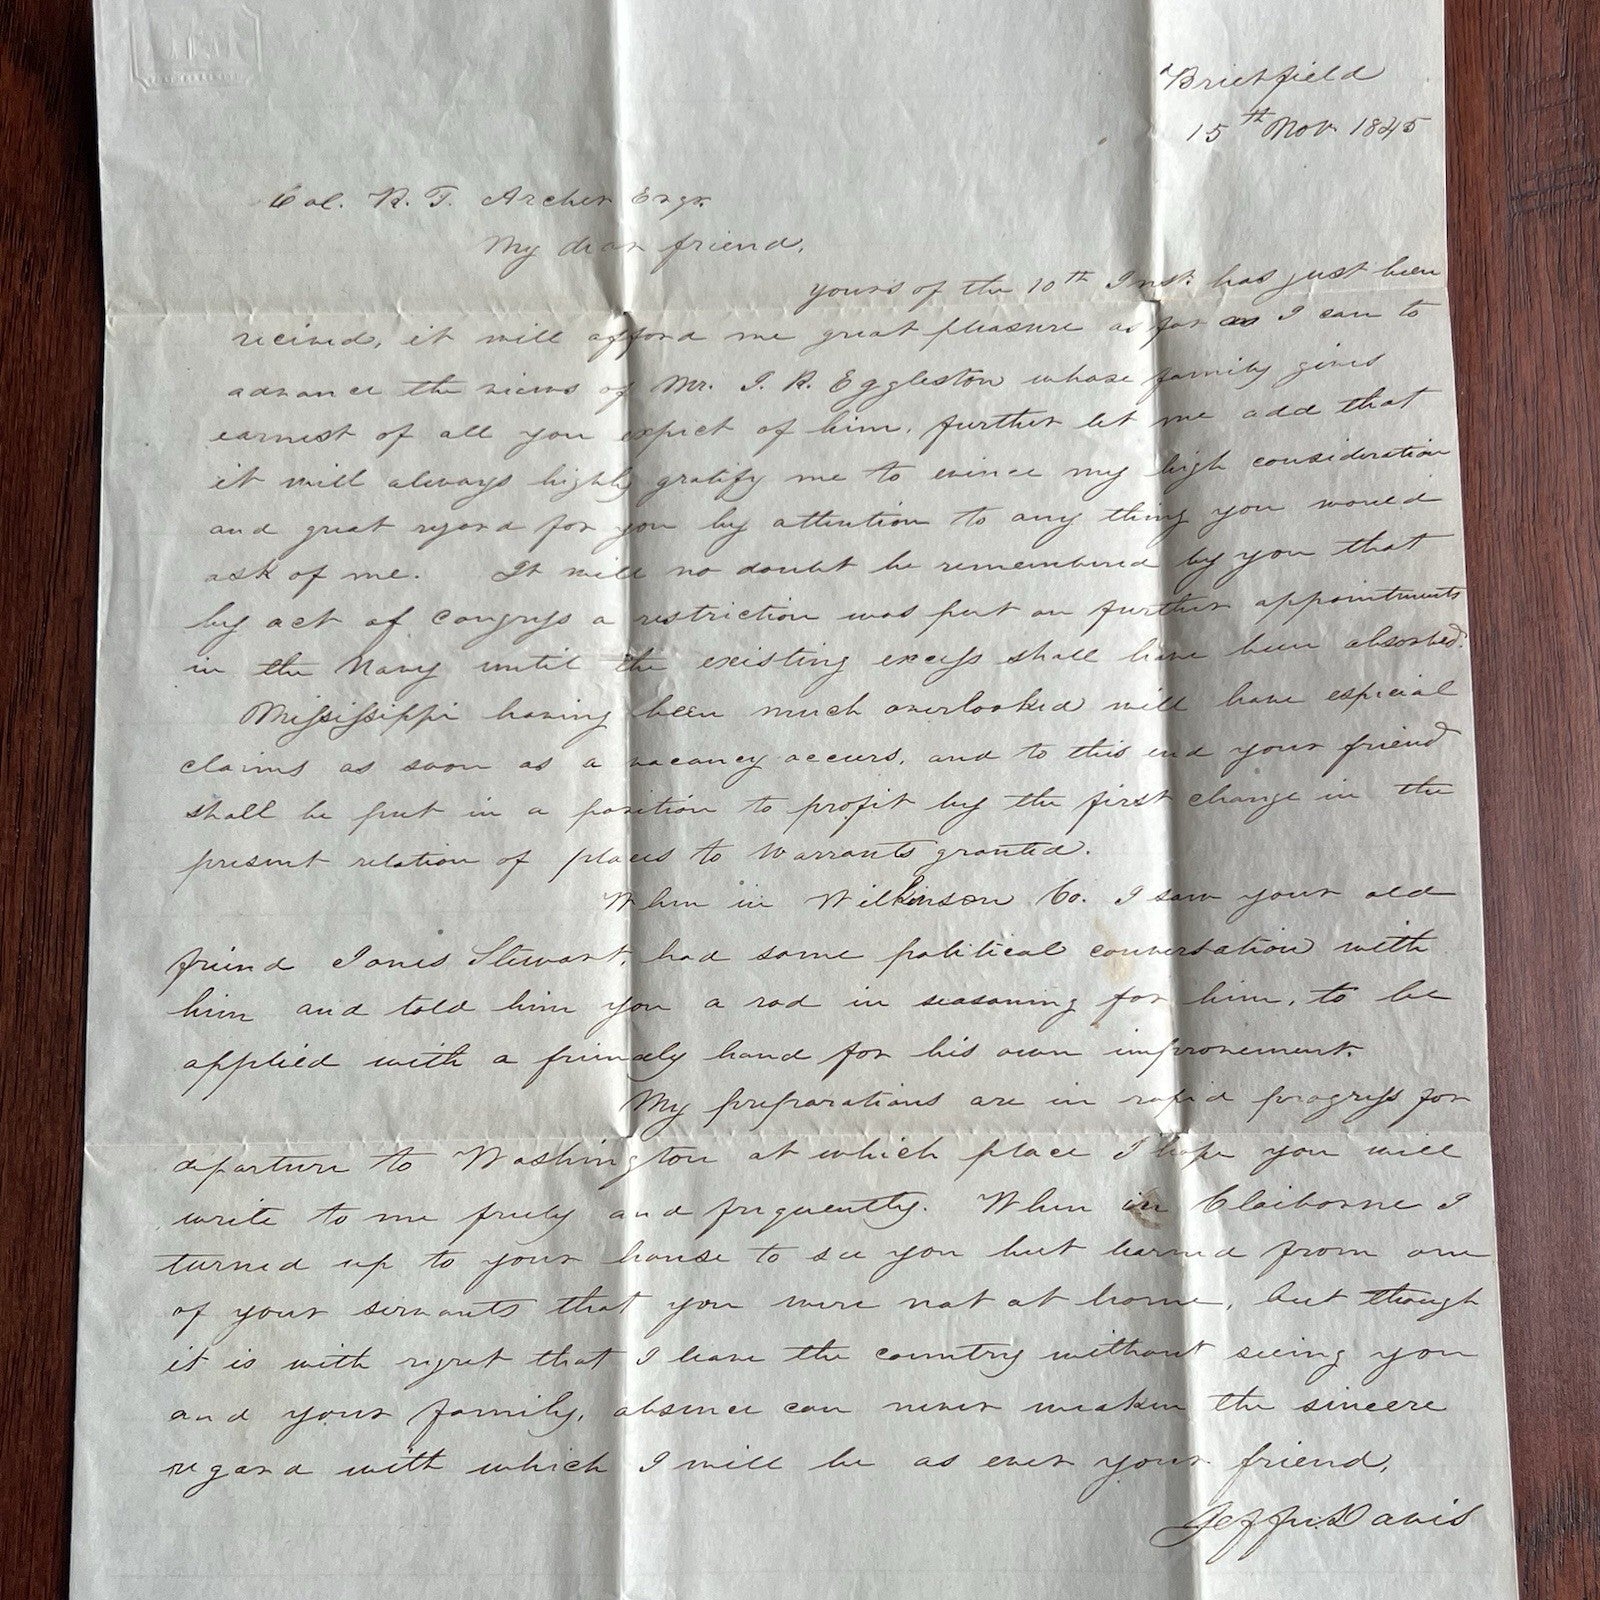 Brierfield
15th Nov. 1845
Col. R. T. Archer Esqr.
My dear friend,
yours of the 10th Inst. has just been
recieved, it will afford me great pleasure as far as I can to
advance the views of Mr. J. R. Eggleston whose family gives
earnest of all you expect of him, further let me add that
it will always highly gratify me to evince my high consideration
and great regard for you by attention to any thing you would
ask of me. It will no doubt be remembered by you that
by act of Congress a restriction was put on further appointments
in the Navy until the existing excess shall have been absorbed.
Mississippi having been much overlooked will have especial
claims as soon as a vacancy occurs, and to this end your friend
shall be put in a position to profit by the first change in the
present relation of places to warrants granted.
When in Wilkinson Co. I saw your old
friend Jones Stewart, had some political conversation with
him and told him you a rod in seasoning for him, to be
applied with a friendly hand for his own improvement.
My preparations are in rapid progress for
departure to Washington at which place I hope you will
write to me freely and frequently. When in Claiborne I
turned up to your house to see you but learned from one
of your servants that you were not at home, but though
it is with regret that I leave the country without seeing you
and your family, absence can never weaken the sincere
regard with which I will be as ever your friend,
Jeffn. Davis